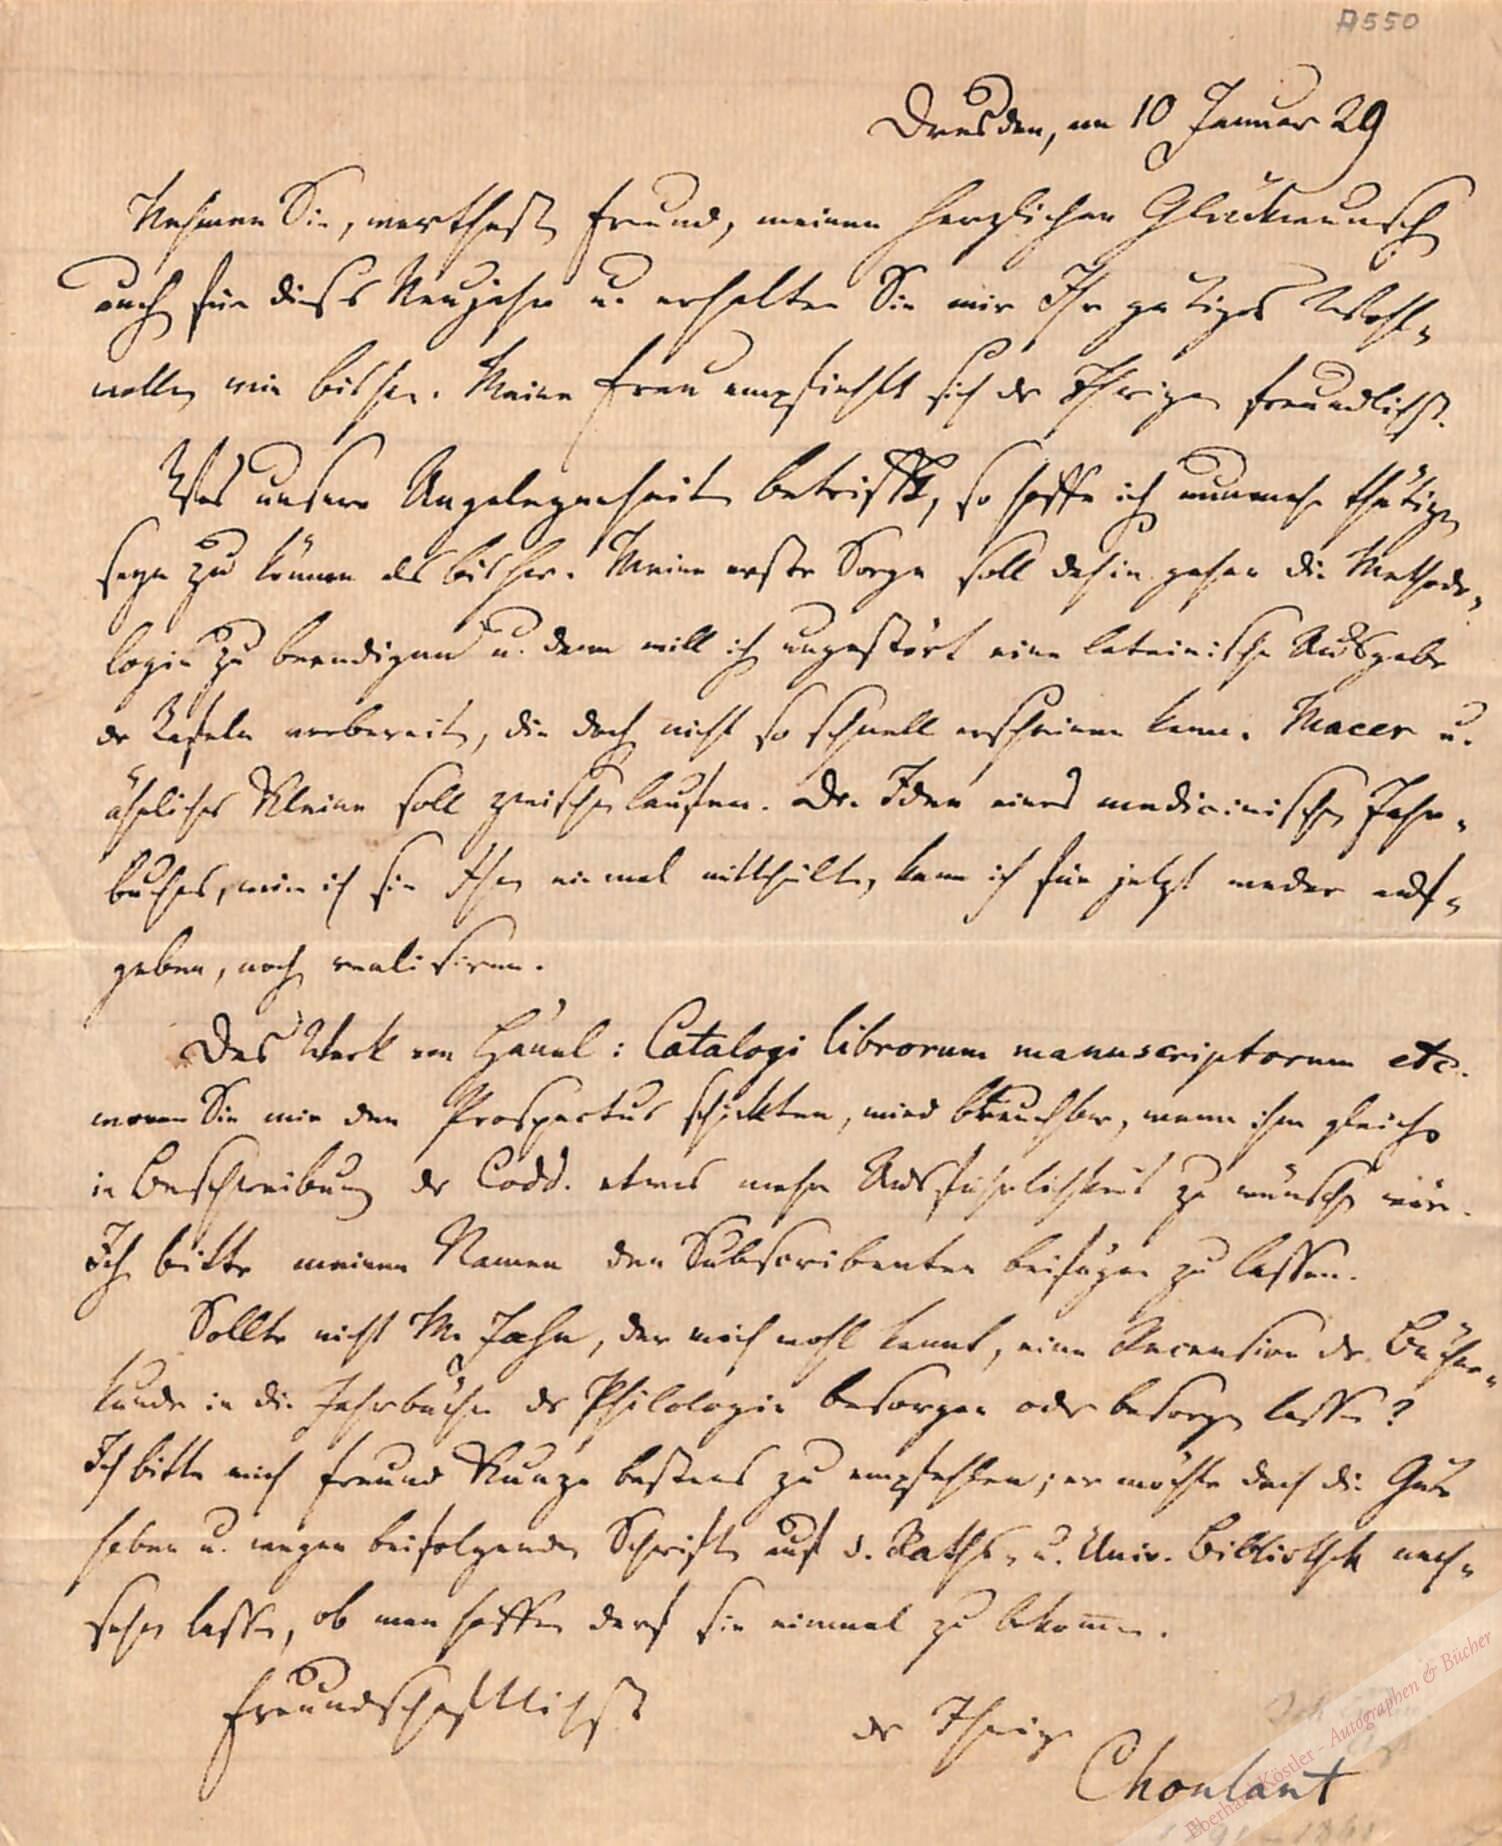 A550
Dresden, am 10 Januar 29
Nehmen Sie, werthester Freund, meinen herzlichen Glückwunsch
auch für dieses Neujahr u. erhalten Sie mir Ihr gütiges Wohl-
wollen wie bisher. Meine Frau empfiehlt sich der Ihrigen freundlichst.
Was unsere Angelegenheiten betrifft, so hoffe ich nunmehr thätiger
seyn zu können als bisher. Meine erste Sorge soll dahin gehen die Methodo-
logie zu beendigen u. dann will ich ungestört eine lateinische Ausgabe
der Tafeln vorbereiten, die doch nicht so schnell erscheinen kann. Macer u.
ähnliches Kleine soll zwischen laufen. Die Idee eines medicinischen Jahr-
buches, wie ich sie Ihnen einmal mittheilte, kann ich für jetzt weder auf-
geben, noch realisiren.
Das Werk von Hänel: Catalogi librorum manuscriptorum etc.
wovon Sie mir den Prospectus schickten, wird brauchbar, wenn ihm gleich
in Beschreibung der Codd. etwas mehr Ausführlichkeit zu wünschen wäre.
Ich bitte meinen Namen den Subscribenten beifügen zu lassen.
Sollte nicht M. Jahn, der mich wohl kennt, eine Recension der Bücher-
kunde in die Jahrbücher der Philologie besorgen oder besorgen lassen?
Ich bitte mich Freund Kunze bestens zu empfehlen; er möchte doch die Güte
haben u. wegen beifolgender Schriften auf d. Raths- u. Univ. Bibliothek nach-
sehen lassen, ob man hoffen darf sie einmal zu bekommen.
Freundschaftlichst
der Ihrige
Choulant
Eberhard Köstler - Autographen & Bücher